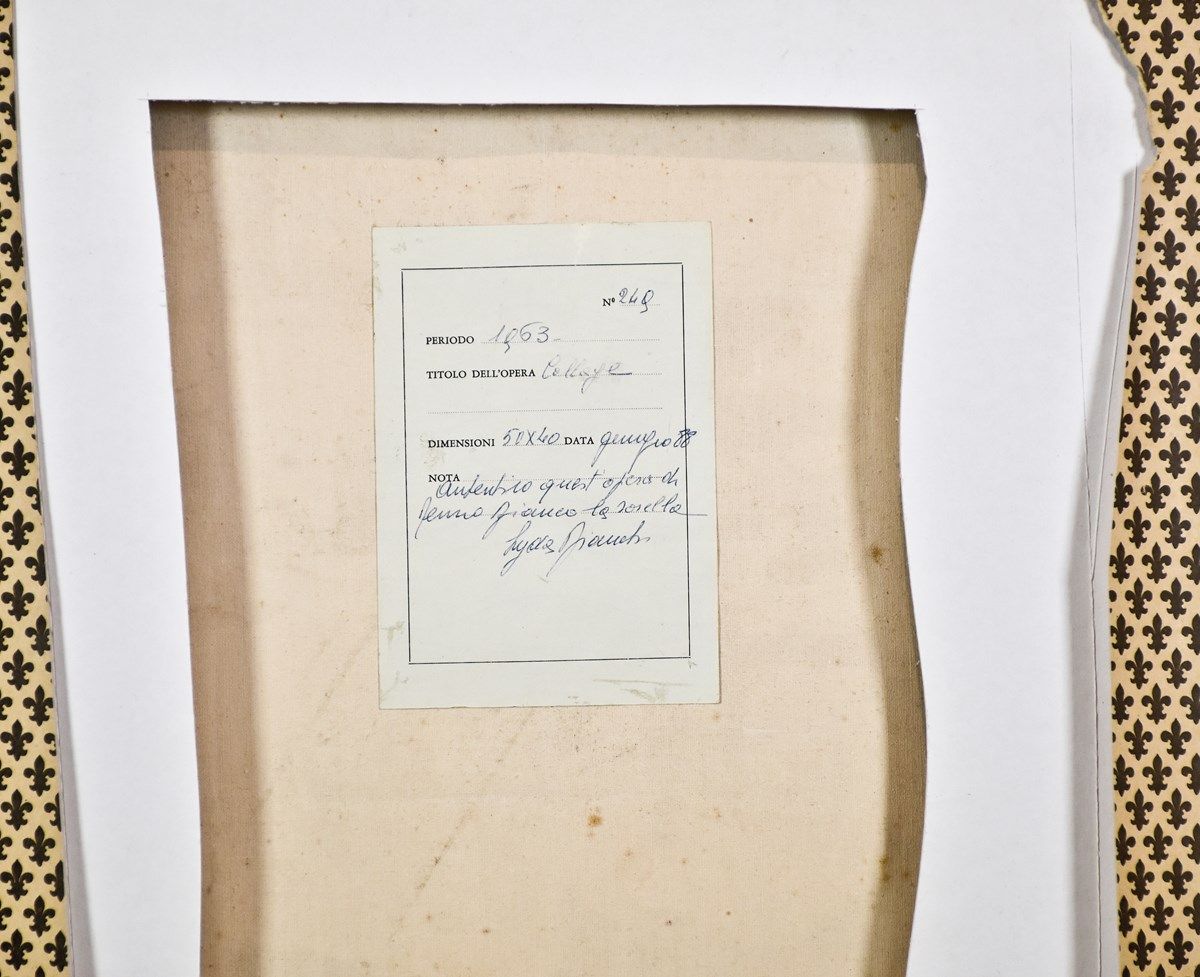 Nº 249
PERIODO 1963
TITOLO DELL'OPERA Collage
DIMENSIONI 50X40 DATA gennaio 88
NOTA
Autentico quest'opera di
Bianco la sorella
Lyda Bianchi